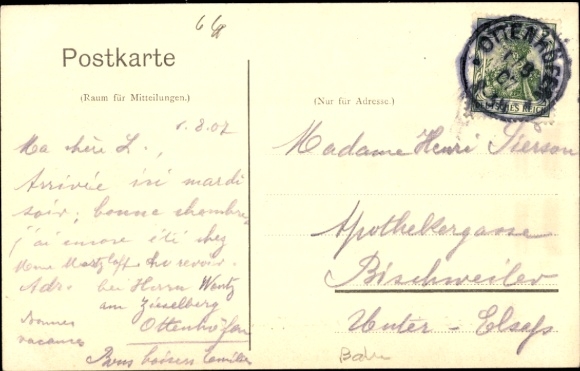 66
Postkarte
(Raum für Mitteilungen.)
(Nur für Adresse.)
OTTENHÖFEN
DEUTSCHES REICH
1.8.07
Ma chère L.,
Arrivée ici mardi
soir; bonne chambre,
j'ai encore été chez
Mme au revoir.
Adr. bei Herrn Wentz
am Zieselberg
Ottenhöfen
Bonnes
vacances
Bons baisers
Madame Henri Sierson
Apothekergasse
Bischweiler
Unter - Elsaß
Baden